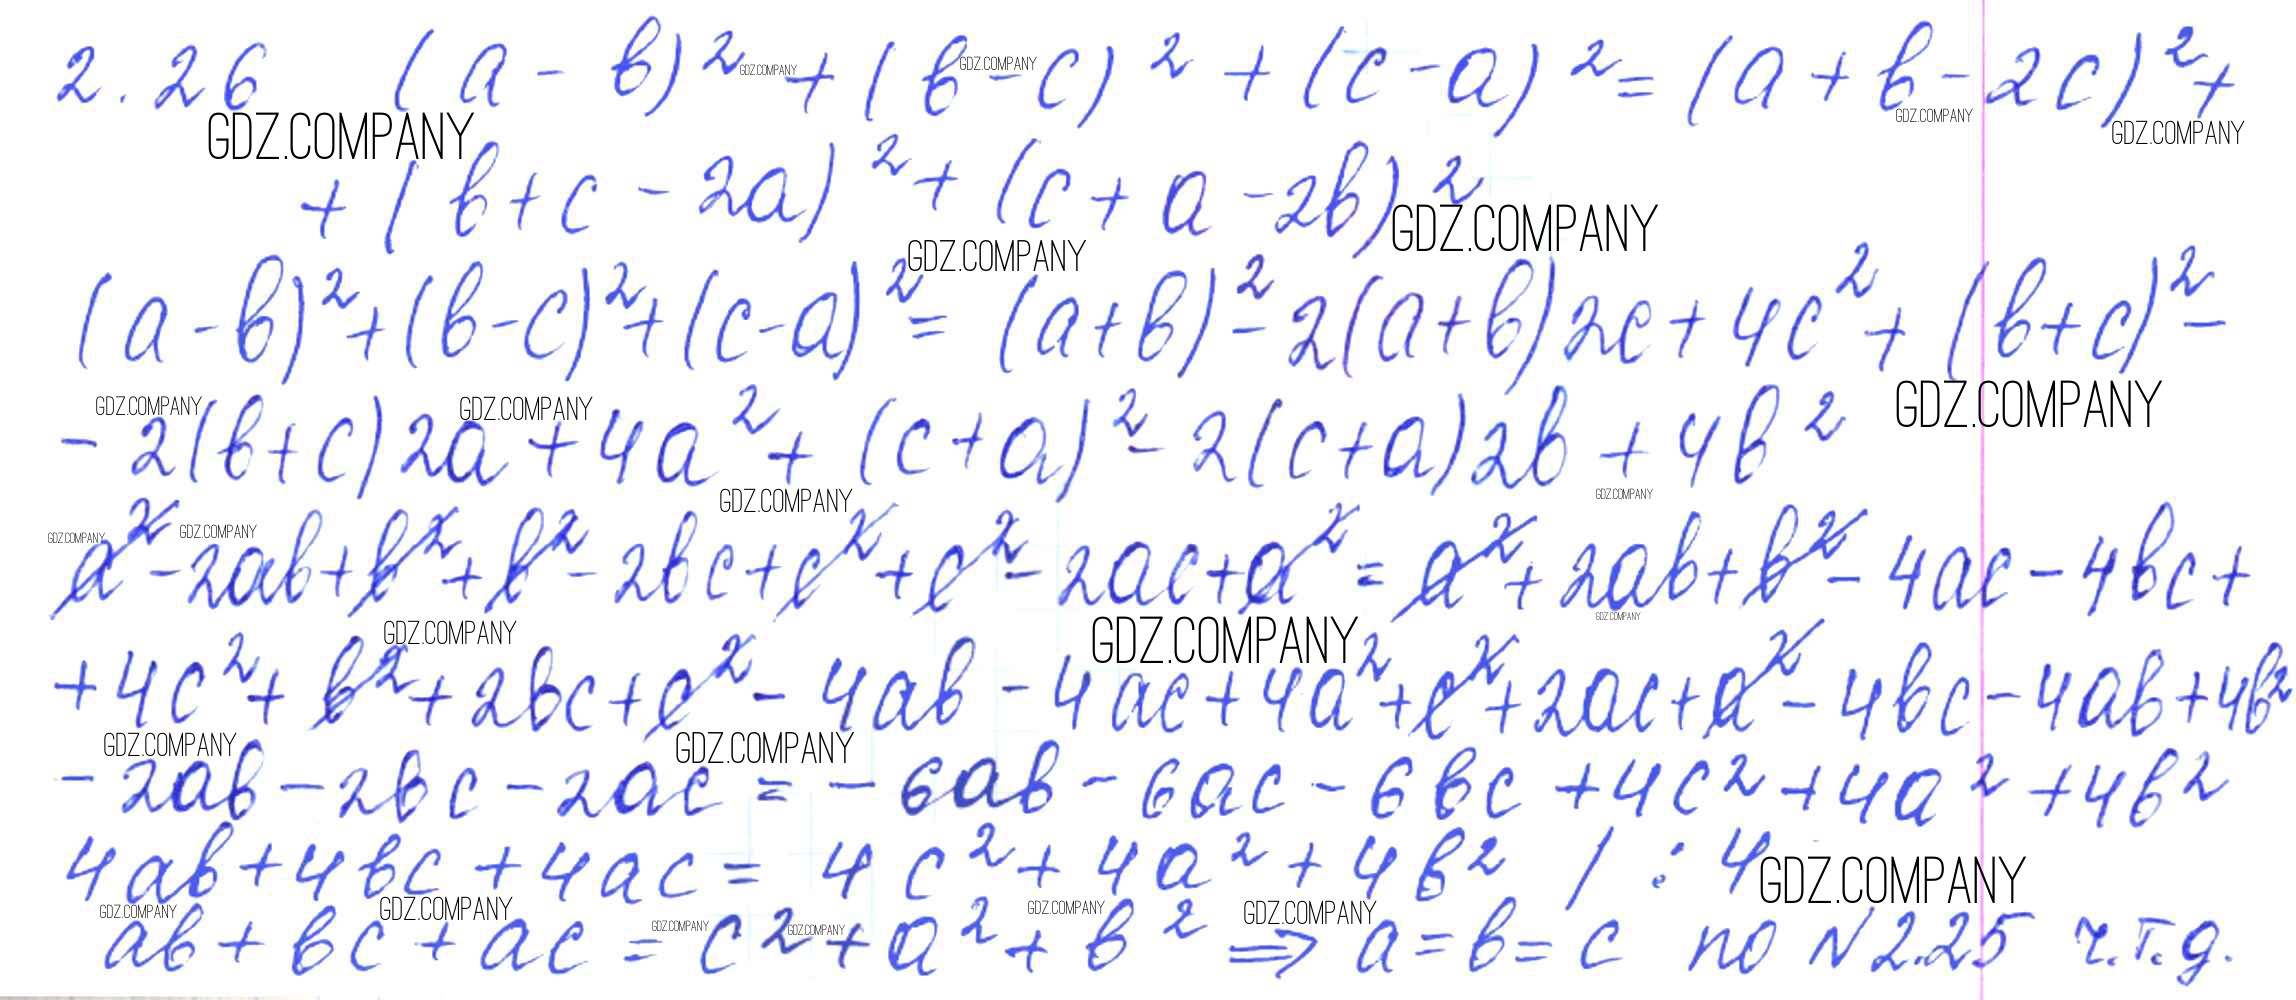 2.26 (a - b)² + (b - c)² + (c - a)² = (a + b - 2c)² +
+ (b + c - 2a)² + (c + a - 2b)²
(a - b)² + (b - c)² + (c - a)² = (a + b)² - 2(a + b)2c + 4c² + (b + c)² -
- 2(b + c)2a + 4a² + (c + a)² - 2(c + a)2b + 4b²
a² - 2ab + b² + b² - 2bc + c² + c² - 2ac + a² = a² + 2ab + b² - 4ac - 4bc +
+ 4c² + b² + 2bc + c² - 4ab - 4ac + 4a² + c² + 2ac + a² - 4bc - 4ab + 4b²
- 2ab - 2bc - 2ac = - 6ab - 6ac - 6bc + 4c² + 4a² + 4b²
4ab + 4bc + 4ac = 4c² + 4a² + 4b² / : 4
ab + bc + ac = c² + a² + b² ⇒ a = b = c по №2.25 ч.т.д.
GDZ.COMPANY